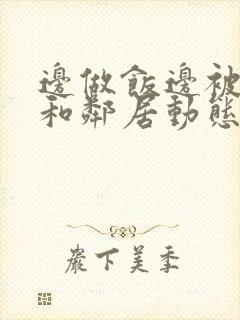 邊做飯邊被
和鄰居動態
嚴下美季